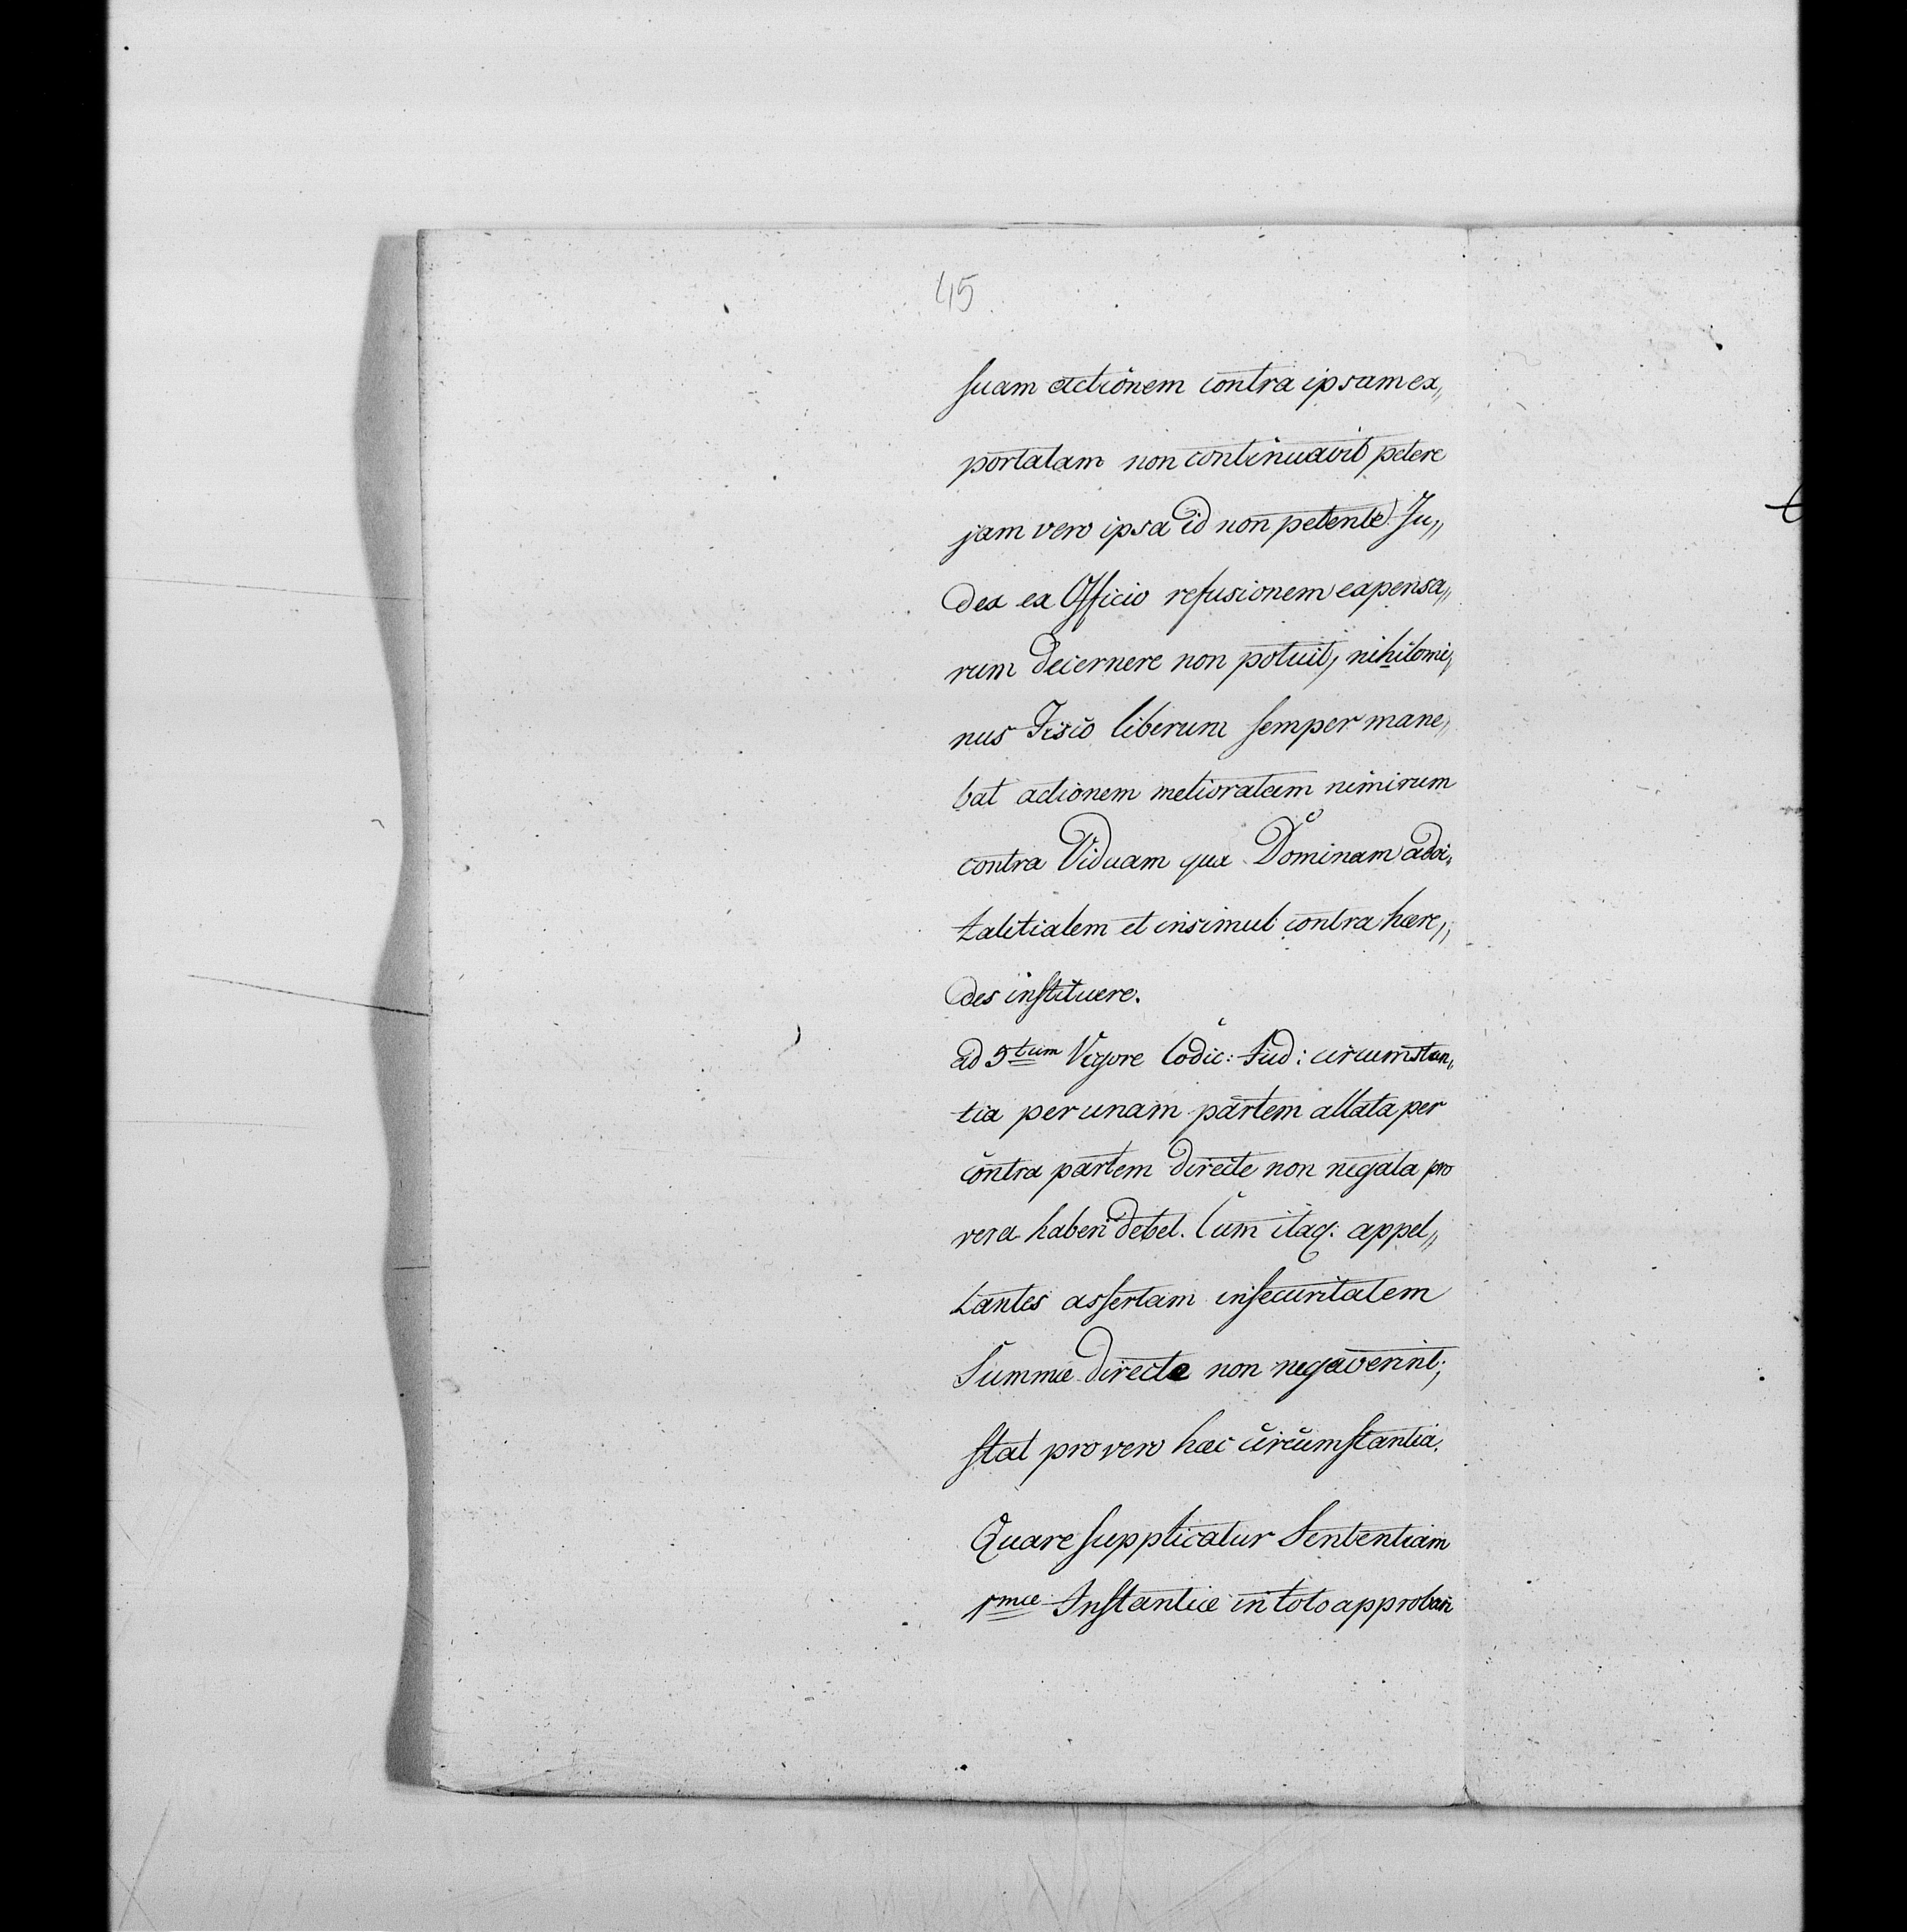 45
suam actionem contra ipsam ex„
portatam non continuavit petere
jam vero ipsa id non petente Ju„
dex ex Officio refusionem expensa„
rum decernere non potuit, nihilomi„
nus Fisco liberum semper mane„
bat actionem melioratam nimirum
contra Viduam qua Dominam advi„
talitialem et insimul contra hære„
des instituere.
ad 5tum Vigore Codic: Jud: circumstan„
tia per unam partem allata per
contra partem directe non negata pro
vera haberi debet. Cum itaq: appel„
lantes assertam insecuritatem
Summæ directe non negaverint;
stat pro vero hæc circumstantia.
Quare supplicatur Sententiam
1mæ Instantiæ in toto approbari